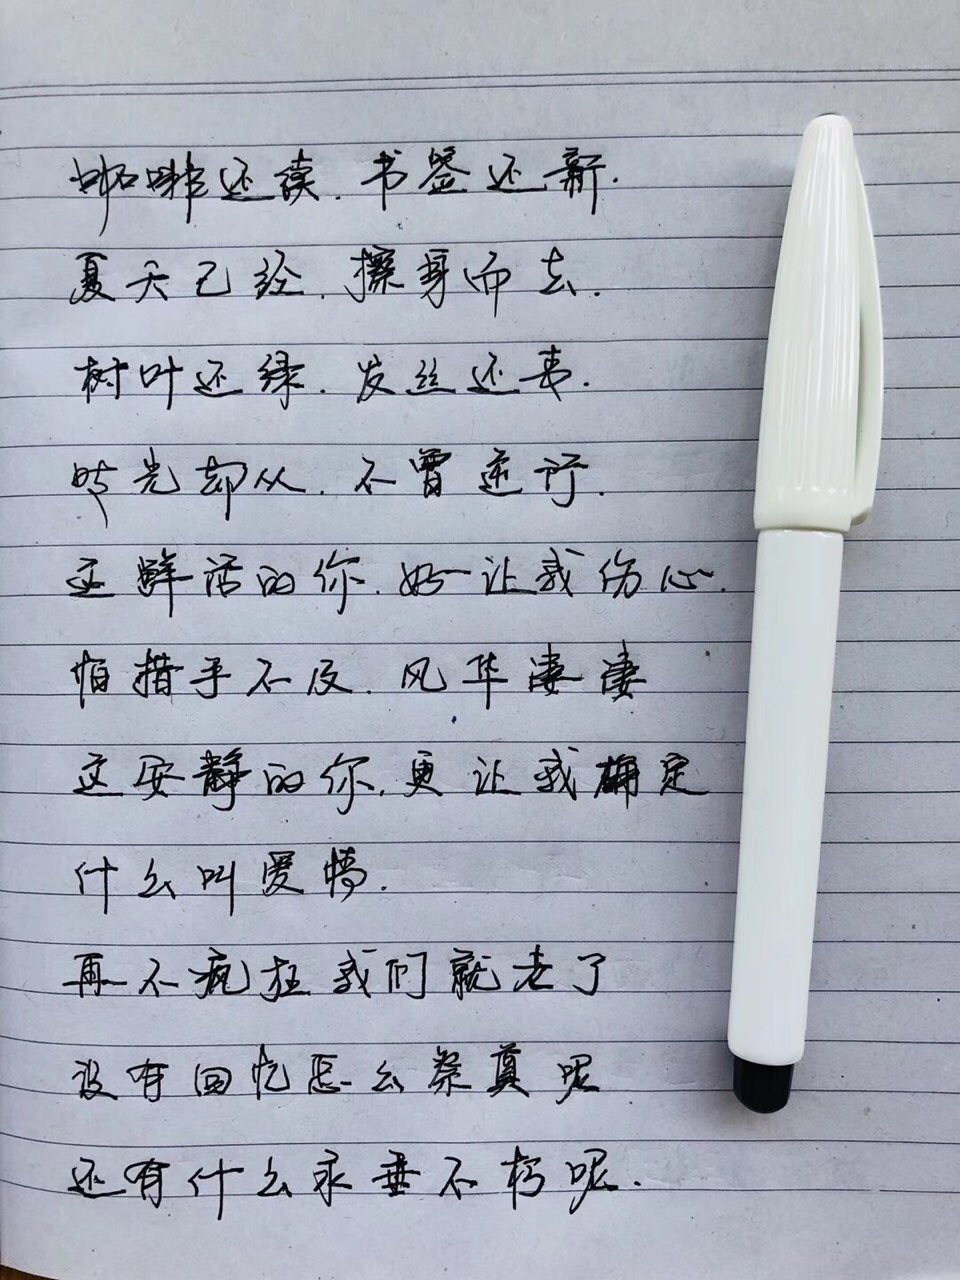 咖啡还读.书签还新.
夏天已经.擦身而去.
树叶还绿.发丝还青.
时光却从.不曾逆行.
这鲜活的你.好让我伤心.
怕措手不及.风华凄凄
这安静的你.更让我确定
什么叫爱情.
再不疯狂我们就老了
没有回忆怎么祭奠呢
还有什么永垂不朽呢.